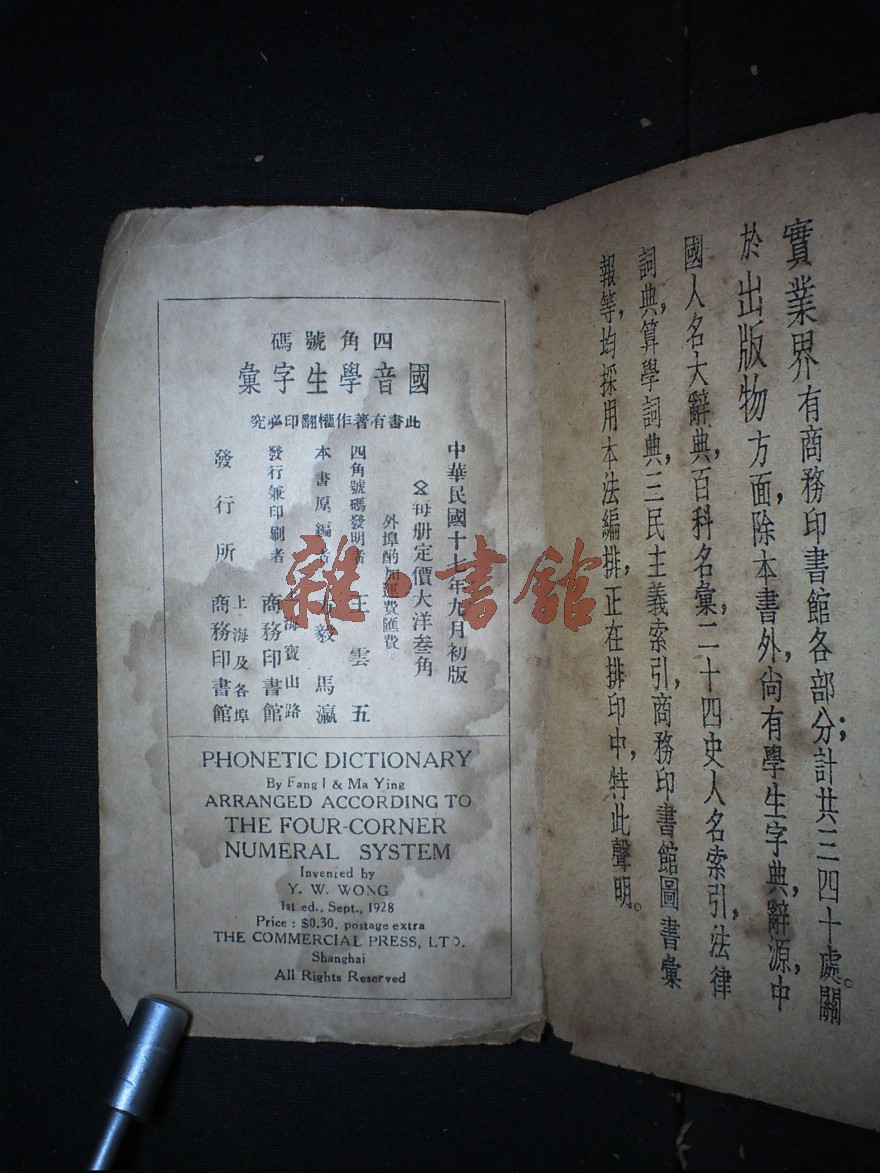 實業界有商務印書館各部分；計共三四十處。關
於出版物方面，除本書外，尚有學生字典，辭源，中
國人名大辭典，百科名彙，二十四史人名索引，法律
詞典，算學詞典，三民主義索引，商務印書館圖書彙
報等，均採用本法編排，正在排印中，特此聲明。
四角號碼
國音學生字彙
此書有著作權翻印必究
中華民國十七年九月初版
每册定價大洋叁角
外埠酌加運費匯費
四角號碼發明者 王雲五
本書原編者 方毅 馬瀛
發行兼印刷者 上海寶山路 商務印書館
發行所 上海及各埠 商務印書館
PHONETIC DICTIONARY
By Fang I & Ma Ying
ARRANGED ACCORDING TO
THE FOUR-CORNER
NUMERAL SYSTEM
Invented by
Y. W. WONG
1st ed., Sept., 1928
Price : $0.30, postage extra
THE COMMERCIAL PRESS, LTD.
Shanghai
All Rights Reserved
雜·書館